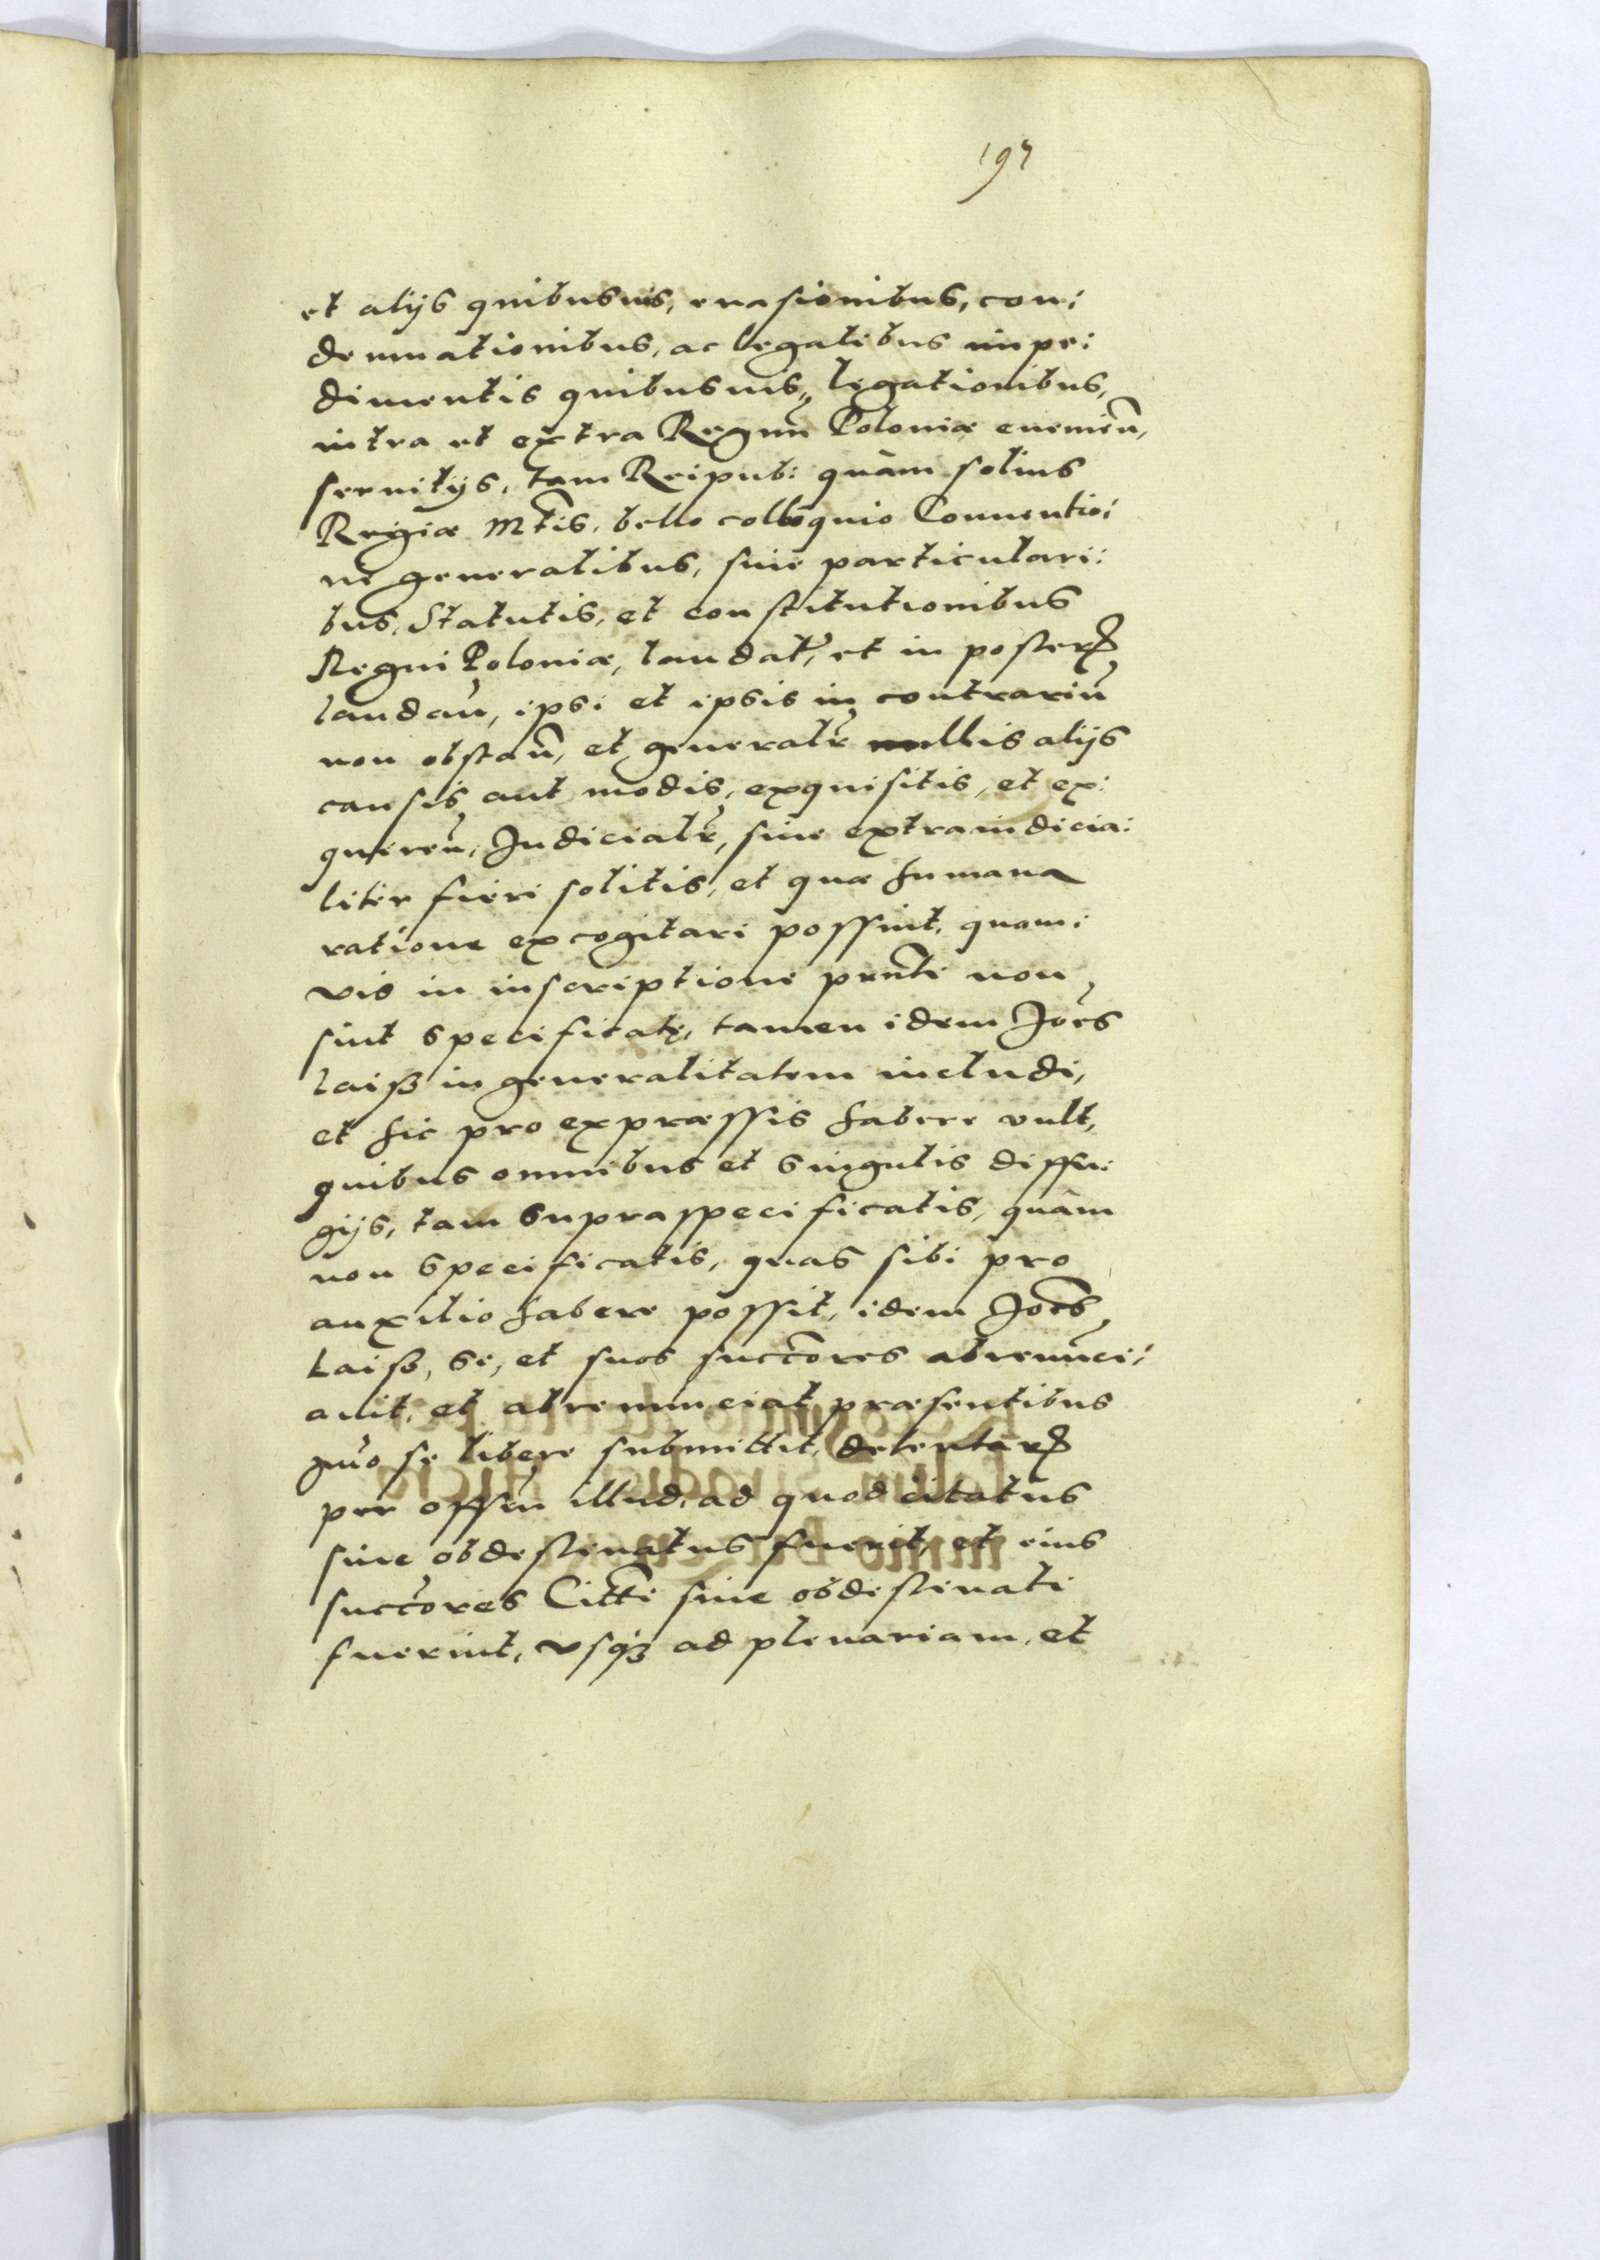 197
et alijs quibusuis, euasionibus, con:
demnationibus, ac legalibus impe:
dimentis quibusuis, legationibus,
intra et extra Regnũ Poloniæ euenieñ,
seruitijs, tam Reipub: quàm solius
Regiæ Mtis, bello colloquio Conuentio:
ne generalibus, siue particulari:
bus, Statutis, et constitutionibus
Regni Poloniæ, laudat, et in poster
laudañ, ipsi et ipsis in contrariũ
non obstañ, et generalr nullis alijs
causis aut modis, exquisitis, et ex:
quireñ, Judicialr, siue extraiudicia:
liter fieri solitis, et quæ humana
ratione excogitari possint, quam:
vis in inscriptione prnti non
sint specificatę, tamen idem Joes
Laisß in generalitatem includi,
et hic pro expræssis habere vult,
quibus omnibus et singulis diffu:
gijs, tam supraspecificatis, quàm
non specificatis, quas sibi pro
auxilio habere possit, idem Joes
Laisß, se, et suos succores abrenunci:
auit, et abrenunciat præsentibus
quo se libere submittit, detentar
per offm illud, ad quod citatus
siue obdestinatus fuerit, et eius
succores Citti siue obdestinati
fuerint, vsqȝ ad plenariam, et